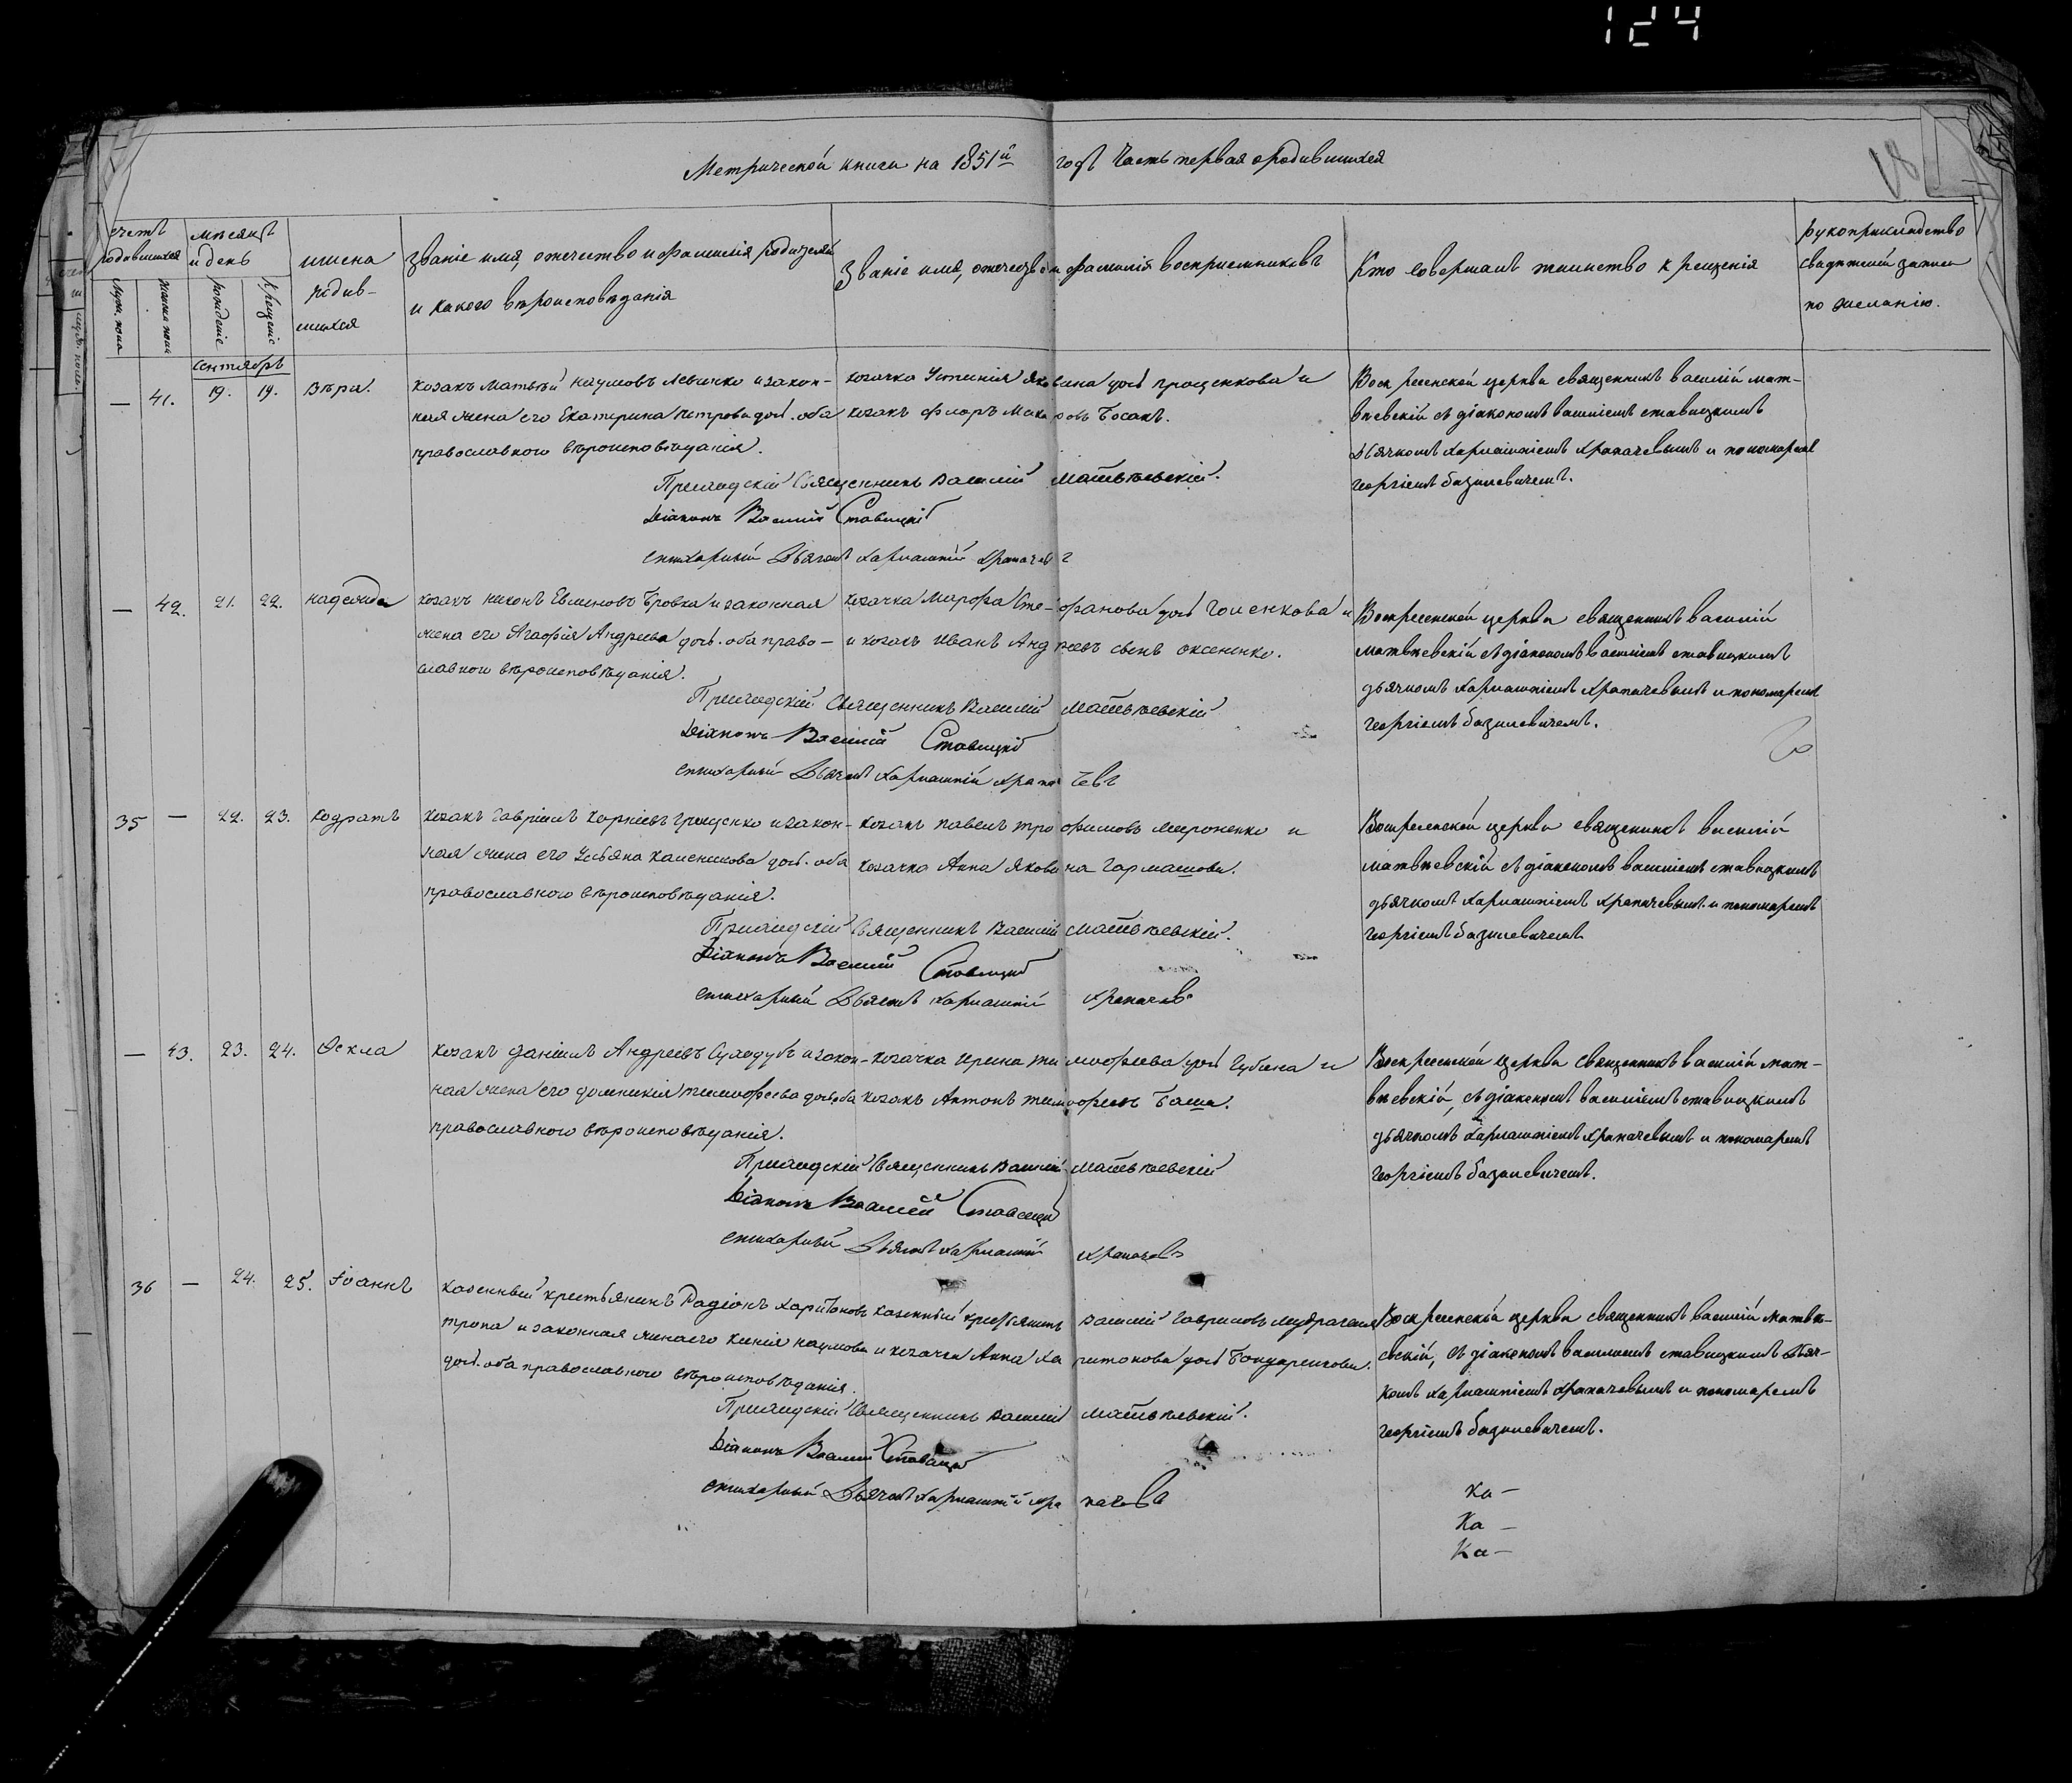 124
Метрической книги на 1851й годъ Часть первая о родившихся
18
счетъ родившихся
мѣсяцъ и день
имена родив-
шихся
Званіе имя, отечество и фамилія родителей
и какого вѣроисповѣданія
Званіе имя, отечество и фамилія воспріемниковъ
Кто совершалъ таинство крещенія
рукоприкладство
свидѣтелей записи
по желанію.
муж. пола
женска пола
рожденіе
крещеніе
Сентябрь
— 41. 19. 19. Вѣра.
козакъ матвѣй наумовъ левченко и закон-
ная жена его Екатерина петрова дочь. оба
православного вѣроисповѣданія.
козачка Устинія Яковина дочь грощенкова и
козакъ флоръ Макаровъ Босакъ.
Воскресенской церкви священникъ василій мат-
вѣевскій съ діакономъ василіемъ ставицкимъ
дьячкомъ харлампіемъ храпачевымъ и пономаремъ
георгіемъ базилевичемъ.
Приходскій Священникъ Василій Матвѣевскій.
Діаконъ Василій Ставицкій
стихарный Дьячекъ харлампій храпачевъ
— 42. 21. 22. надежда
козакъ никонъ Евменовъ Бровка и законная
жена его Агафія Андреева дочь. оба право-
славного вѣроисповѣданія.
козачка Марфа Сте-фанова дочь и
и козакъ иванъ Андреевъ сынъ оксененко.
Воскресенской церкви священникъ василій
матвѣевскій съ діакономъ василіемъ ставицкимъ
дьячкомъ харлампіемъ храпачевымъ и пономаремъ
георгіемъ базилевичемъ.
Приходскій Священникъ Василій Матвѣевскій
Діаконъ Василій Ставицкій
стихарный Дьячекъ харлампій храпачевъ
35 — 22. 23. кодратъ
козакъ гавріилъ корніевъ грищенко и закон-
ная жена его Ульяна каленикова дочь. оба
православного вѣроисповѣданія.
козакъ павелъ трофимовъ мироненко и
козачка Анна Яковина гармашова.
Воскресенской церкви священникъ василій
матвѣевскій съ діакономъ василіемъ ставицкимъ
дьячкомъ харлампіемъ храпачевымъ и пономаремъ
георгіемъ базилевичемъ
Приходскій Священникъ Василій Матвѣевскій.
Діаконъ Василій Ставицкій
стихарный Дьячекъ харлампій храпачевъ
— 43. 23. 24. Ѳекла
козакъ даніилъ Андреевъ Суходубъ и закон-
ная жена его домникія тимофеева дочь оба
православного вѣроисповѣданія.
козачка ирина тимофеева дочь Губина и
козакъ Антонъ тимофеевъ Баша.
Воскресенской церкви священникъ василій мат-
вѣевскій, съ діакономъ василіемъ ставицкимъ
дьячкомъ харлампіемъ храпачевымъ и пономаремъ
георгіемъ базилевичемъ.
Приходскій Священникъ Василій Матвѣевскій
Діаконъ Василій Ставицкій
стихарный Дьячекъ харлампій храпачевъ
36 — 24. 25. Іоаннъ
казенный крестьянинъ Радіонъ харитоновъ
тропа и законная жена его ксенія наумова
дочь. оба православного вѣроисповѣданія.
казенный крестьянинъ василій гавриловъ
и козачка Анна харитонова дочь Бондаренкова.
Воскресенской церкви священникъ василій матвѣ-
евскій, съ діакономъ василіемъ ставицкимъ дьяч-
комъ харлампіемъ храпачевымъ и пономаремъ
георгіемъ базилевичемъ.
Приходскій Священникъ Василій Матвѣевскій.
Діаконъ Василій Ставицкій
стихарный Дьячекъ харлампій храпачевъ
ка —
Ка —
Ка —